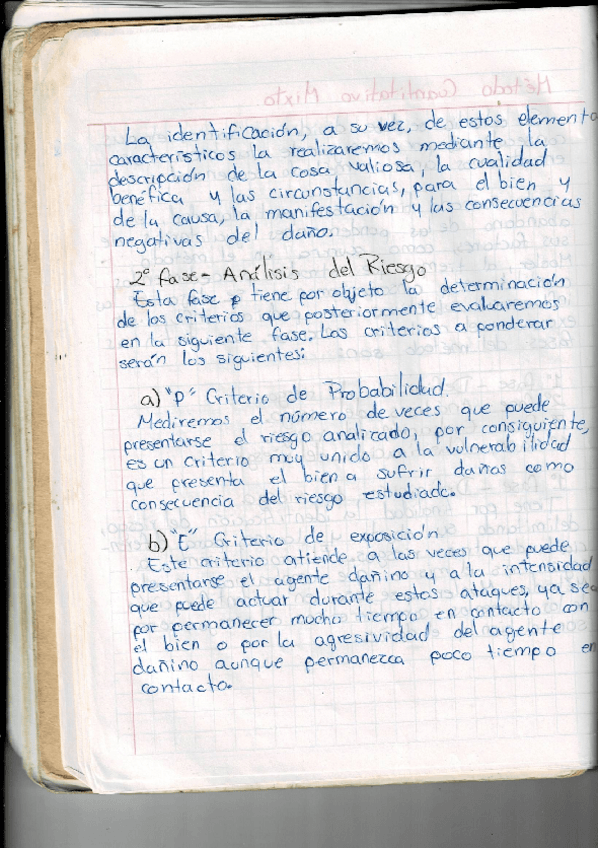 La identificación, a su vez, de estos elemento
característicos la realizaremos mediante la
descripción de la cosa valiosa, la cualidad
benéfica y las circunstancias, para el bien y
de la causa, la manifestación y las consecuencias
negativas del daño.
2° fase - Análisis del Riesgo
Esta fase p tiene por objeto la determinación
de los criterios que posteriormente evaluaremos
en la siguiente fase. Los criterios a ponderar
serán los siguientes:
a) "P" Criterio de Probabilidad.
Mediremos el número de veces que puede
presentarse el riesgo analizado, por consiguiente,
es un criterio muy unido a la vulnerabilidad
que presenta el bien a sufrir daños como
consecuencia del riesgo estudiado.
b) "E" Criterio de exposición
Este criterio atiende a las veces que puede
presentarse el agente dañino y a la intensidad
que puede actuar durante estos ataques, ya sea
por permanecer mucho tiempo en contacto con
el bien o por la agresividad del agente
dañino aunque permanezca poco tiempo en
contacto.